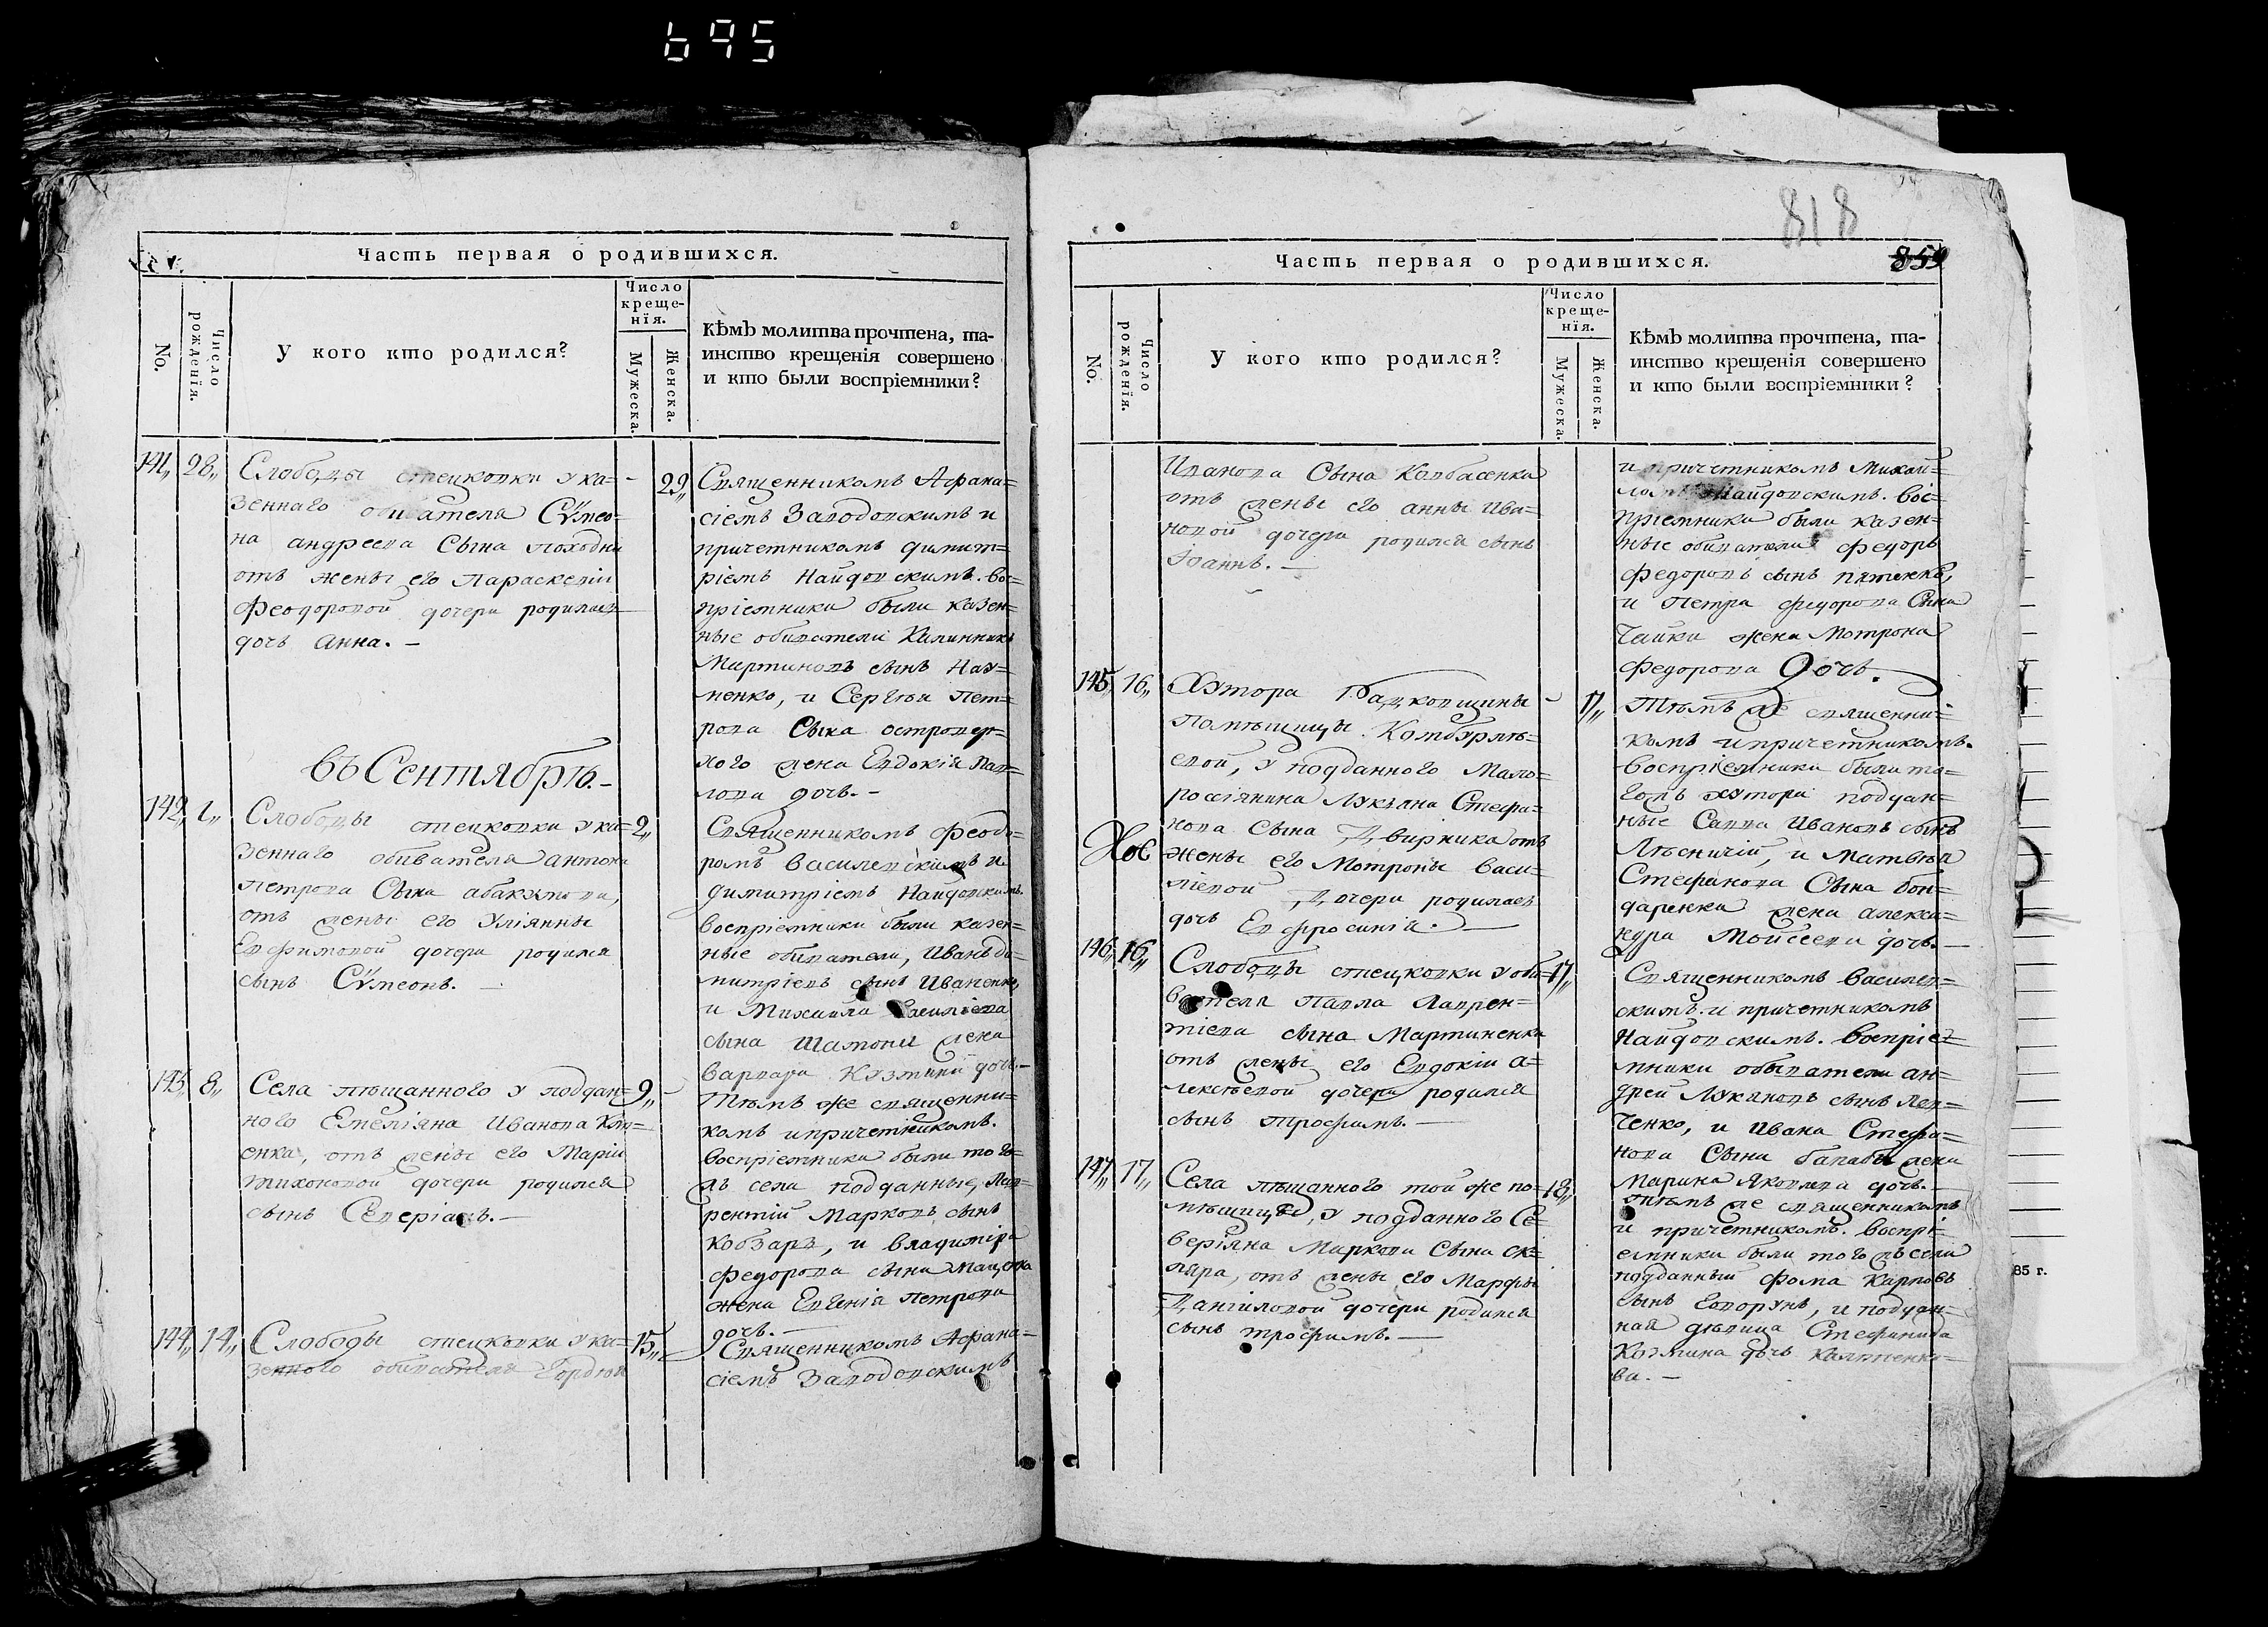 695
Часть первая о родившихся.
No.
Число рожденїя.
У кого кто родился?
Число
креще-
нїя.
Мужеска.
Женска.
КѣмЪ молитва прочтена, та-
инство крещенія совершено
и кто были воспріемники?
141,, 28,,
Слободы стецковки у ка=
зеннаго обивателя Сѵмео-
на андреева Сына
отъ жены его Параскевіи
Феодоровой дочери родилась
дочь анна. –
29,,
Священникомъ Афана=
сіемъ Заводовскимъ и
причетникомъ димит=
ріемъ Найдовскимъ. во=
пріемники были казен=
ные обиватели Калинникъ
Мартиновъ сынъ Нау=
менко, и Сергѣя Пет=
рова Сына островер=
хого жена Евдокія Пав=
лова дочь. –
въ Сентябрѣ. –
142,, 1,,
Слободы стецковки у ка=
зеннаго обивателя антона
Петрова Сына абакумова,
отъ жены его Уліянны
Евфимовой дочери родился
сынъ Сѵмеонъ. –
2,,
Священникомъ Феодо=
ромъ Василевскимъ и
димитріемъ Найдовскимъ.
воспріемники были казен=
ные обиватели, Иванъ ди=
митріевъ сынъ Иваненко,
и Михаила Василіева
сына Шатони жена
варвара Кузмина дочь. –
143,, 8,,
Села пѣщанного у поддан=
ного Емеліяна Иванова
енка, отъ жены его Маріи
тихоновой дочери родился
сынъ Северіанъ. –
9,,
Тѣмъ же священни=
комъ и причетникомъ.
воспріемники были того=
жъ села подданные, Лав=
рентій Марковъ сынъ
Кобзарь, и владиміра
федорова сына Маценка
жена Евгенія Петрова
дочь. –
144,, 14,,
Слободы стецковки у ка=
зенного обивателя Гордѣя
15,,
Священникомъ Афана=
сіемъ Заводовскимъ
818
859
Часть первая о родившихся.
No.
Число рожденїя.
У кого кто родился?
Число
креще-
нїя.
Мужеска.
Женска.
КѣмЪ молитва прочтена, та-
инство крещенія совершено
и кто были воспріемники?
Иванова Сына Колбасенка
отъ жены его анны Ива=
новой дочери родился сынъ
Іоаннъ. –
и причетникомъ Михаи=
ломъ Найдовскимъ. вос=
пріемники были казен=
ные обиватели федоръ
федоровъ сынъ пятенко,
и Петра федорова Сына
Чайки жена Мотрона
федорова дочь.
145,, 16,,
Хутора Бацковщины
помѣщицы Комбурлѣ=
евой, у подданного Мало=
россіянина Лукьяна Стефа=
нова Сына Двирника отъ
жены его Мотроны васи=
ліевой дочери родилась
дочь Евфросинія. –
17,,
Тѣмъ же священни=
комъ и причетникомъ.
воспріемники были то=
гожъ хутора поддан=
ные Савва Ивановъ сынъ
Лѣсничій, и Матвѣя
Стефанова Сына бон=
даренка жена алекса=
ндра Мойсеева дочь. –
146,, 16,,
Слободы стецковки у оби=
вателя Павла Лаврен=
тіева сына Мартиненка
отъ жены его Евдокіи а=
лексѣевой дочери родился
сынъ Трофимъ. –
17,,
Священникомъ василев=
скимъ и причетникомъ
Найдовскимъ. воспріе=
мники обыватели ан=
дрей Лукяновъ сынъ Лев=
ченко, и Ивана Стефа=
нова Сына бапабы жена
Марина Яковлева дочь. –
147,, 17,,
Села пѣщанного той же по=
мѣщицы, у подданного Се=
веріяна Маркова Сына ск=
ляра, отъ жены его Марфы
Даніиловой дочери родился
сынъ трофимъ. –
18,,
тѣмъ же священникомъ
и причетникомъ. воспрі=
емники были тогожъ села
подданный фома Карповъ
сынъ Говорунъ, и поддан=
ная дѣвица Стефанида
Козмина дочь
ва. –
85 г.